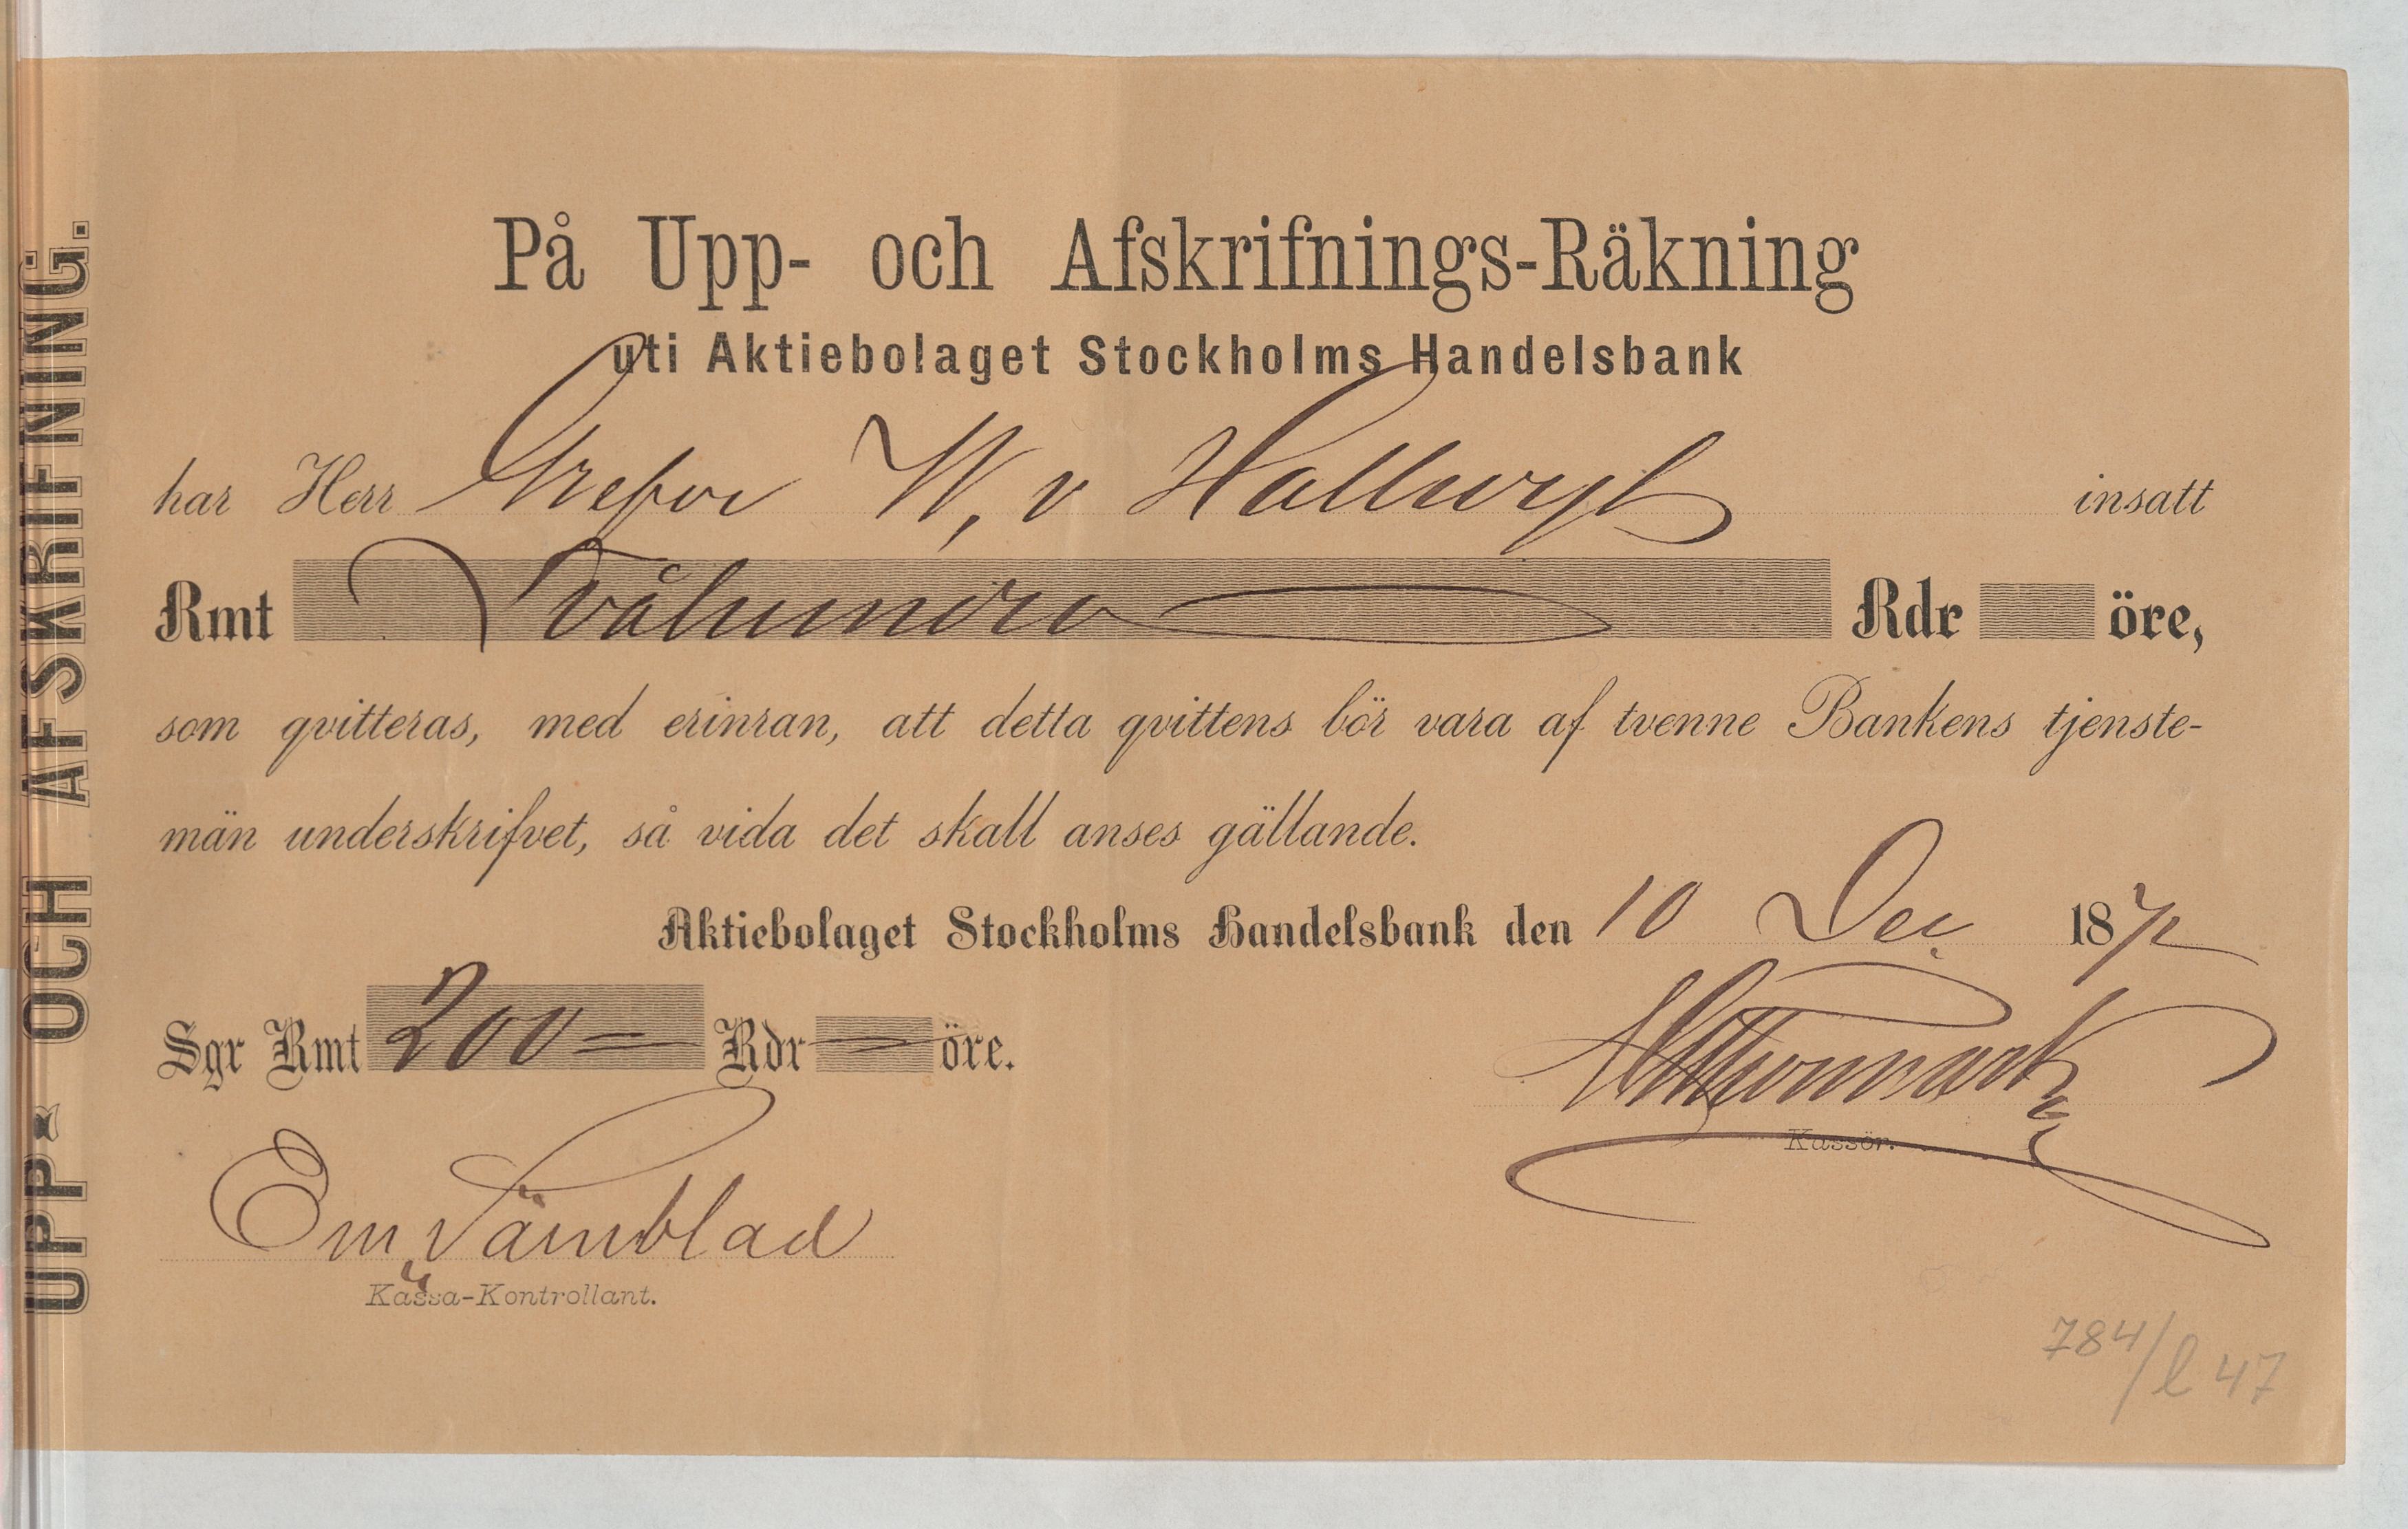 UPP- OCH AFSKRIFNING.
På Upp- och Afskrifnings-Räkning
uti Aktiebolaget Stockholms Handelsbank
har Herr Grefve W. v Hallwyl insatt
Rmt Tvåhundra Rdr öre,
som qvitteras, med erinran, att detta qvittens bör vara af tvenne Bankens tjenste-
män underskrifvet, så vida det skall anses gällande.
Aktiebolaget Stockholms Handelsbank den 10 Dec 1872
Sgr Rmt 200 = Rdr — öre.
Kassör.
Em
Kassa-Kontrollant.
784/l 47